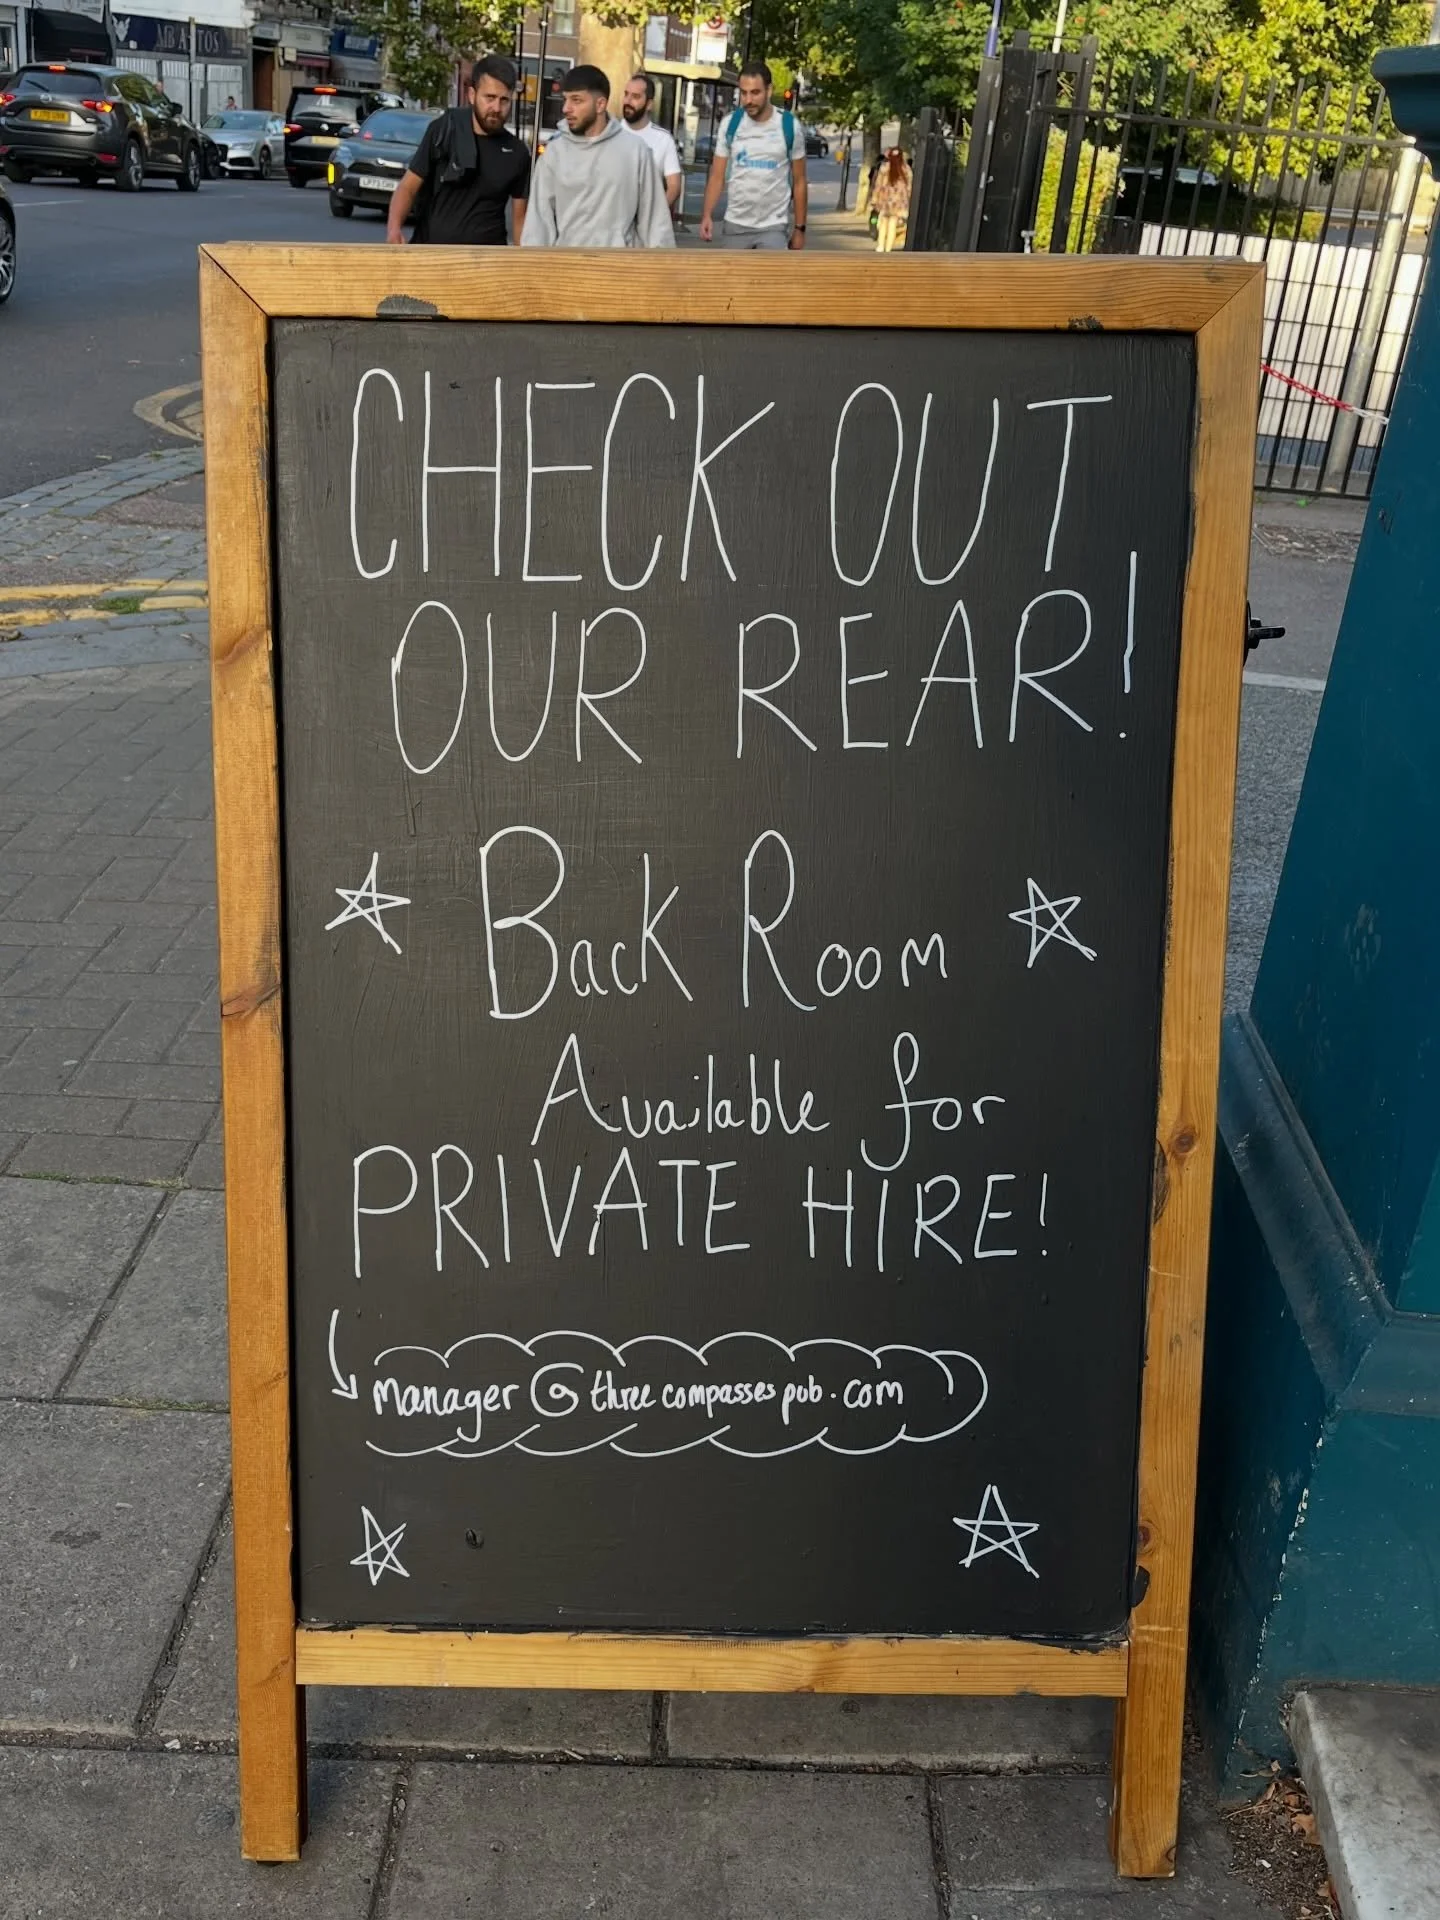 MB AUTOS
CHECK OUT
OUR REAR!
Back Room
Available for
PRIVATE HIRE!
manager@threecompassespub.com